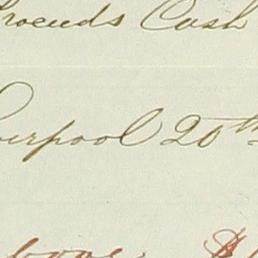 roceeds Cash
verpool 20th